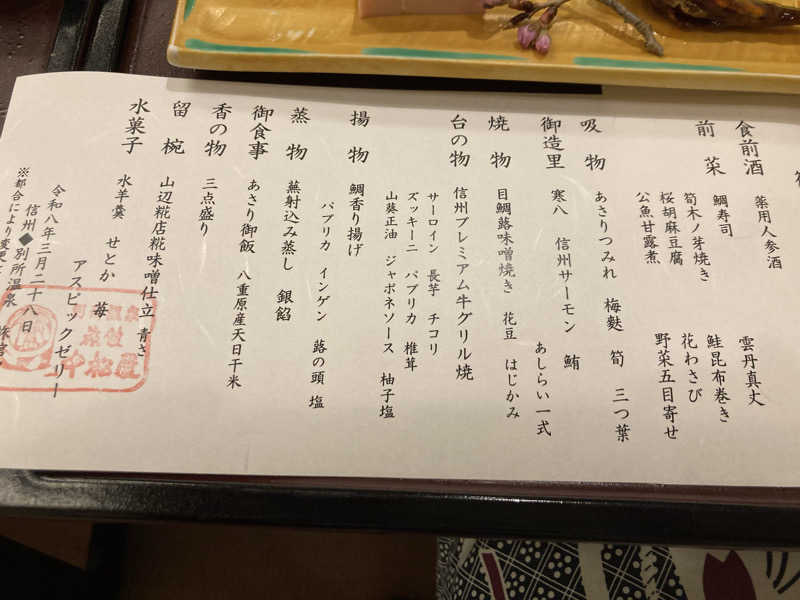 食前酒　薬用人参酒
前菜　鯛寿司　雲丹真丈
筍木ノ芽焼き　鮭昆布巻き
桜胡麻豆腐　花わさび
公魚甘露煮　野菜五目寄せ
吸物　あさりつみれ　梅麩　筍　三つ葉
御造里　寒八　信州サーモン　鮪
あしらい一式
焼物　目鯛蕗味噌焼き　花豆　はじかみ
台の物　信州プレミアム牛グリル焼
サーロイン　長芋　チコリ
ズッキーニ　パプリカ　椎茸
山葵正油　ジャポネソース　柚子塩
揚物　鯛香り揚げ
パプリカ　インゲン　蕗の頭　塩
蒸物　蕪射込み蒸し　銀餡
御食事　あさり御飯　八重原産天日干米
香の物　三点盛り
留椀　山辺糀店糀味噌仕立　青さ
水菓子　水羊羹　せとか　苺
アスピックゼリー
令和八年三月二十八日
信州◆別所温泉
※都合により変更